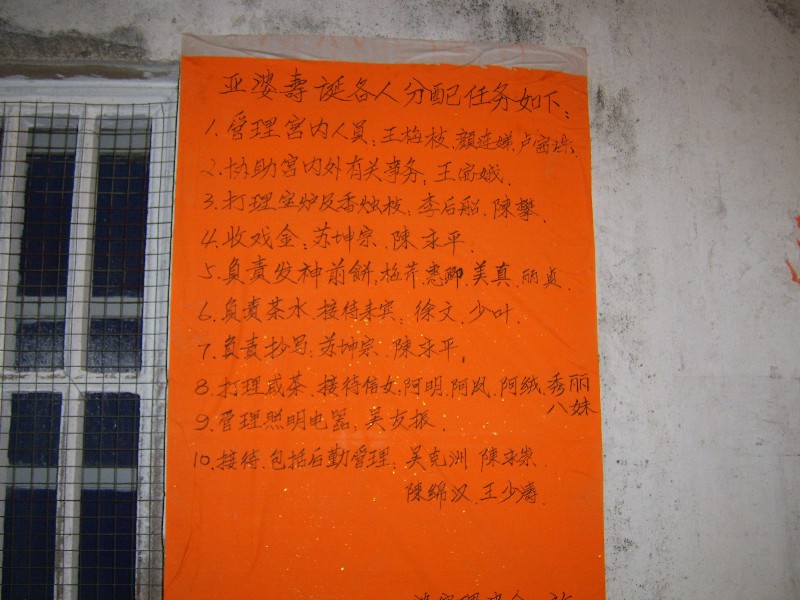 亚婆壽诞各人分配任务如下：
1. 管理宫内人員：王梅枝、顏连娣、卢富珠
2. 协助宫内外有关事务：王富娥.
3. 打理宝炉及香烛枝：李后船、陳攀
4. 收戏金：苏坤宗、陳永平.
5. 負責发神前餅：梅芹 惠卿、美真、丽贞
6. 負責茶水、接待来宾：徐文、少叶.
7. 負責抄写：苏坤宗、陳永平.
8. 打理咸茶、接待信女：阿明、阿凤、阿绒、秀丽
八妹
9. 管理照明电器：吴友振.
10. 接待、包括后勤管理：吴克洲 陳永崇.
陳綿汉、王少涛.